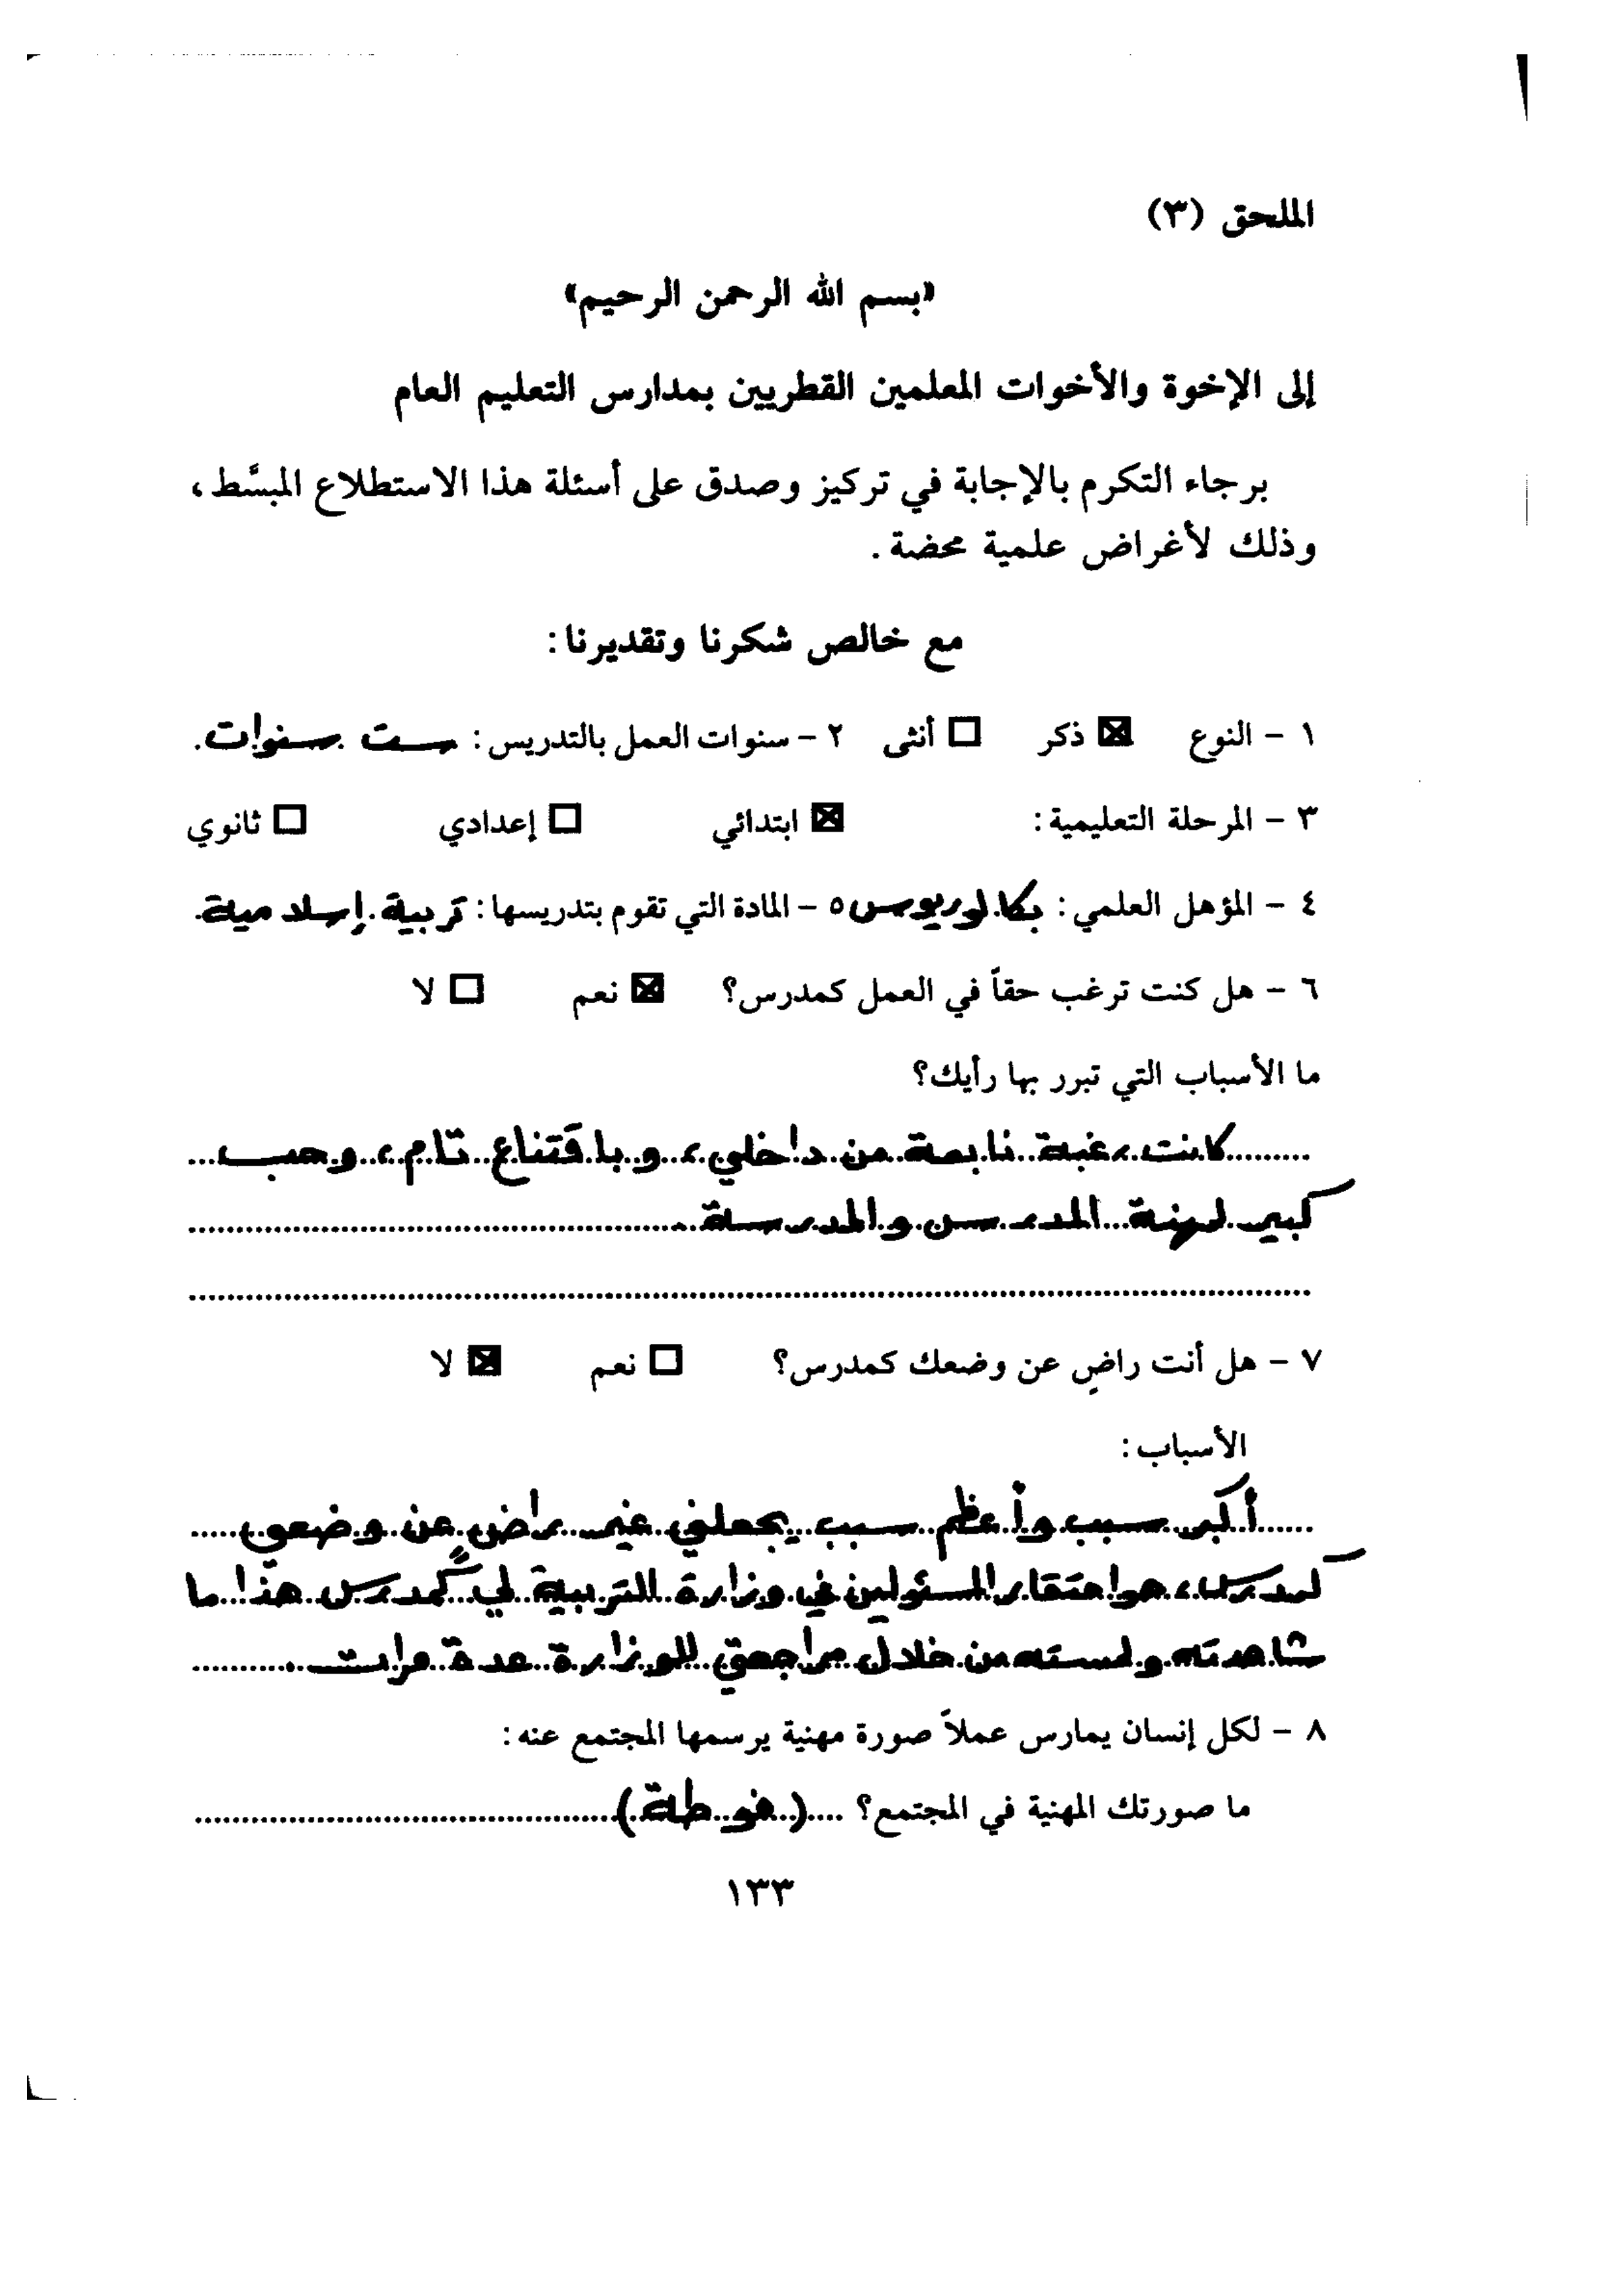 الملحق (٣)
«بسم الله الرحمن الرحيم»
إلى الإخوة والأخوات المعلمين القطريين بمدارس التعليم العام
برجاء التكرم بالإجابة في تركيز وصدق على أسئلة هذا الاستطلاع المبسَّط،
وذلك لأغراض علمية محضة.
مع خالص شكرنا وتقديرنا:
١ - النوع ☒ ذكر ☐ أنثى ٢ - سنوات العمل بالتدريس: ست سنوات.
٣ - المرحلة التعليمية: ☒ ابتدائي ☐ إعدادي ☐ ثانوي
٤ - المؤهل العلمي: بكالوريوس ٥ - المادة التي تقوم بتدريسها: تربية إسلامية.
٦ - هل كنت ترغب حقاً في العمل كمدرس؟ ☒ نعم ☐ لا
ما الأسباب التي تبرر بها رأيك؟
كانت رغبة نابعة من داخلي، وباقتناع تام، وحب
كبير لمهنة المدرس والمدرسة.
٧ - هل أنت راضٍ عن وضعك كمدرس؟ ☐ نعم ☒ لا
الأسباب:
أكبر سبب وأعظم سبب يجعلني غير راضٍ عن وضعي
كمدرس، هو احتقار المسئولين في وزارة التربية لي كمدرس هذا ما
شاهدته ولمسته من خلال مراجعتي للوزارة عدة مرات.
٨ - لكل إنسان يمارس عملاً صورة مهنية يرسمها المجتمع عنه:
ما صورتك المهنية في المجتمع؟ (فوطة)
١٣٣